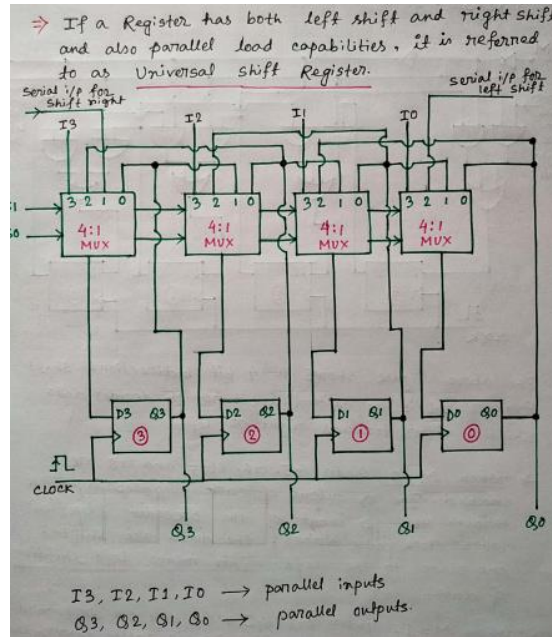 ⇒ If a Register has both left shift and right shift
and also parallel load capabilities, it is referred
to as Universal shift Register.
serial i/p for
shift right
serial i/p for
left shift
I3 I2 I1 I0
3 2 1 0 3 2 1 0 3 2 1 0 3 2 1 0
4:1 MUX 4:1 MUX 4:1 MUX 4:1 MUX
D3 Q3 D2 Q2 D1 Q1 D0 Q0
③ ② ① ⓪
CLOCK
Q3 Q2 Q1 Q0
I3, I2, I1, I0 → parallel inputs
Q3, Q2, Q1, Q0 → parallel outputs.